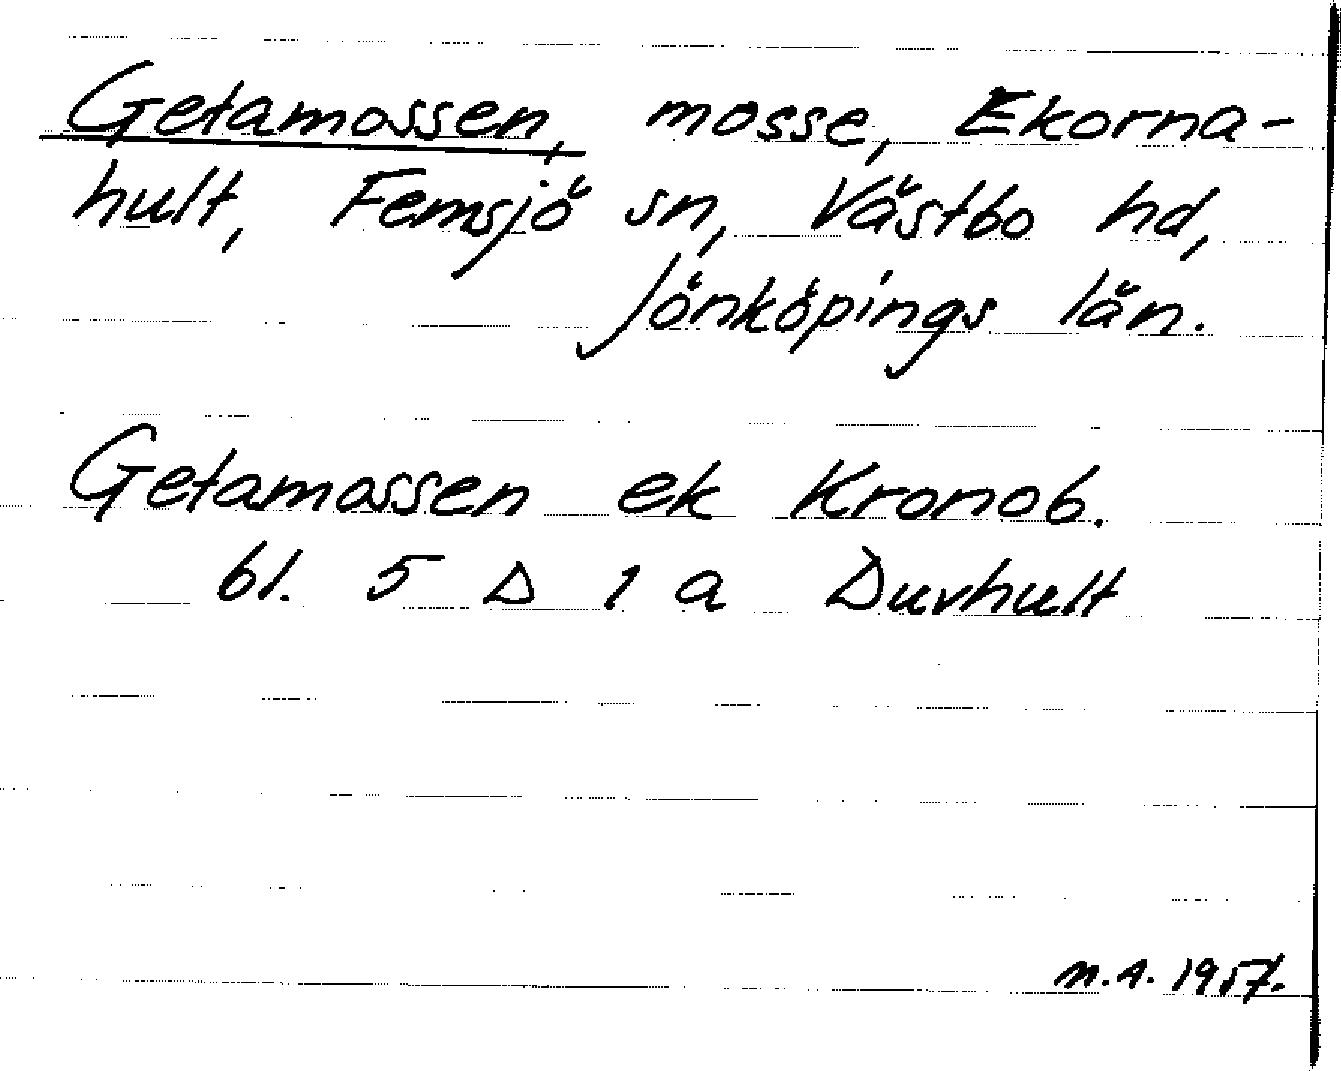 Getamossen, mosse, Ekorna-
hult, Femsjö sn, Västbo hd,
Jönköpings län.
Getamossen ek Kronob.
bl. 5 D 1 a Duvhult
m.a. 1957.